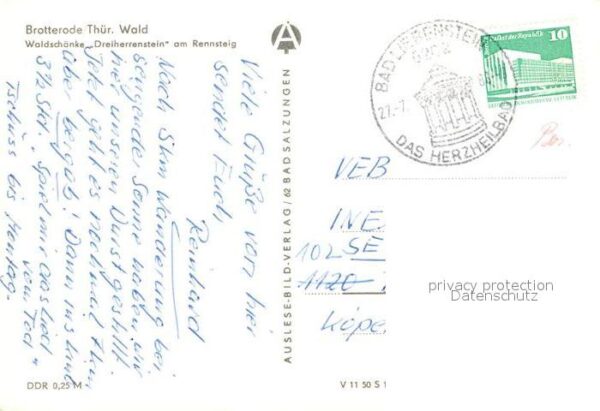 Brotterode Thür. Wald
Waldschänke „Dreiherrenstein" am Rennsteig
Viele Grüße von hier
sendet Euch,
Reinhard
Nach 8km Wanderung bei
sengende Sonne haben wir
hier unseren Durst gestillt.
Jetzt geht es nochmal 7km
aber bergab! Dann ins Kino
3½ Std. „Spiel mir das Lied
vom Tod"
Tschüss bis Montag.
AUSLESE-BILD-VERLAG / 62 BAD SALZUNGEN
A
BAD LIEBENSTEIN
6202
27.-7.
DAS HERZHEILBAD
Palast der Republik
10
VEB
INE
102 SE
1120
Köpe
privacy protection
Datenschutz
DDR 0,25 M
V 11 50 S 1